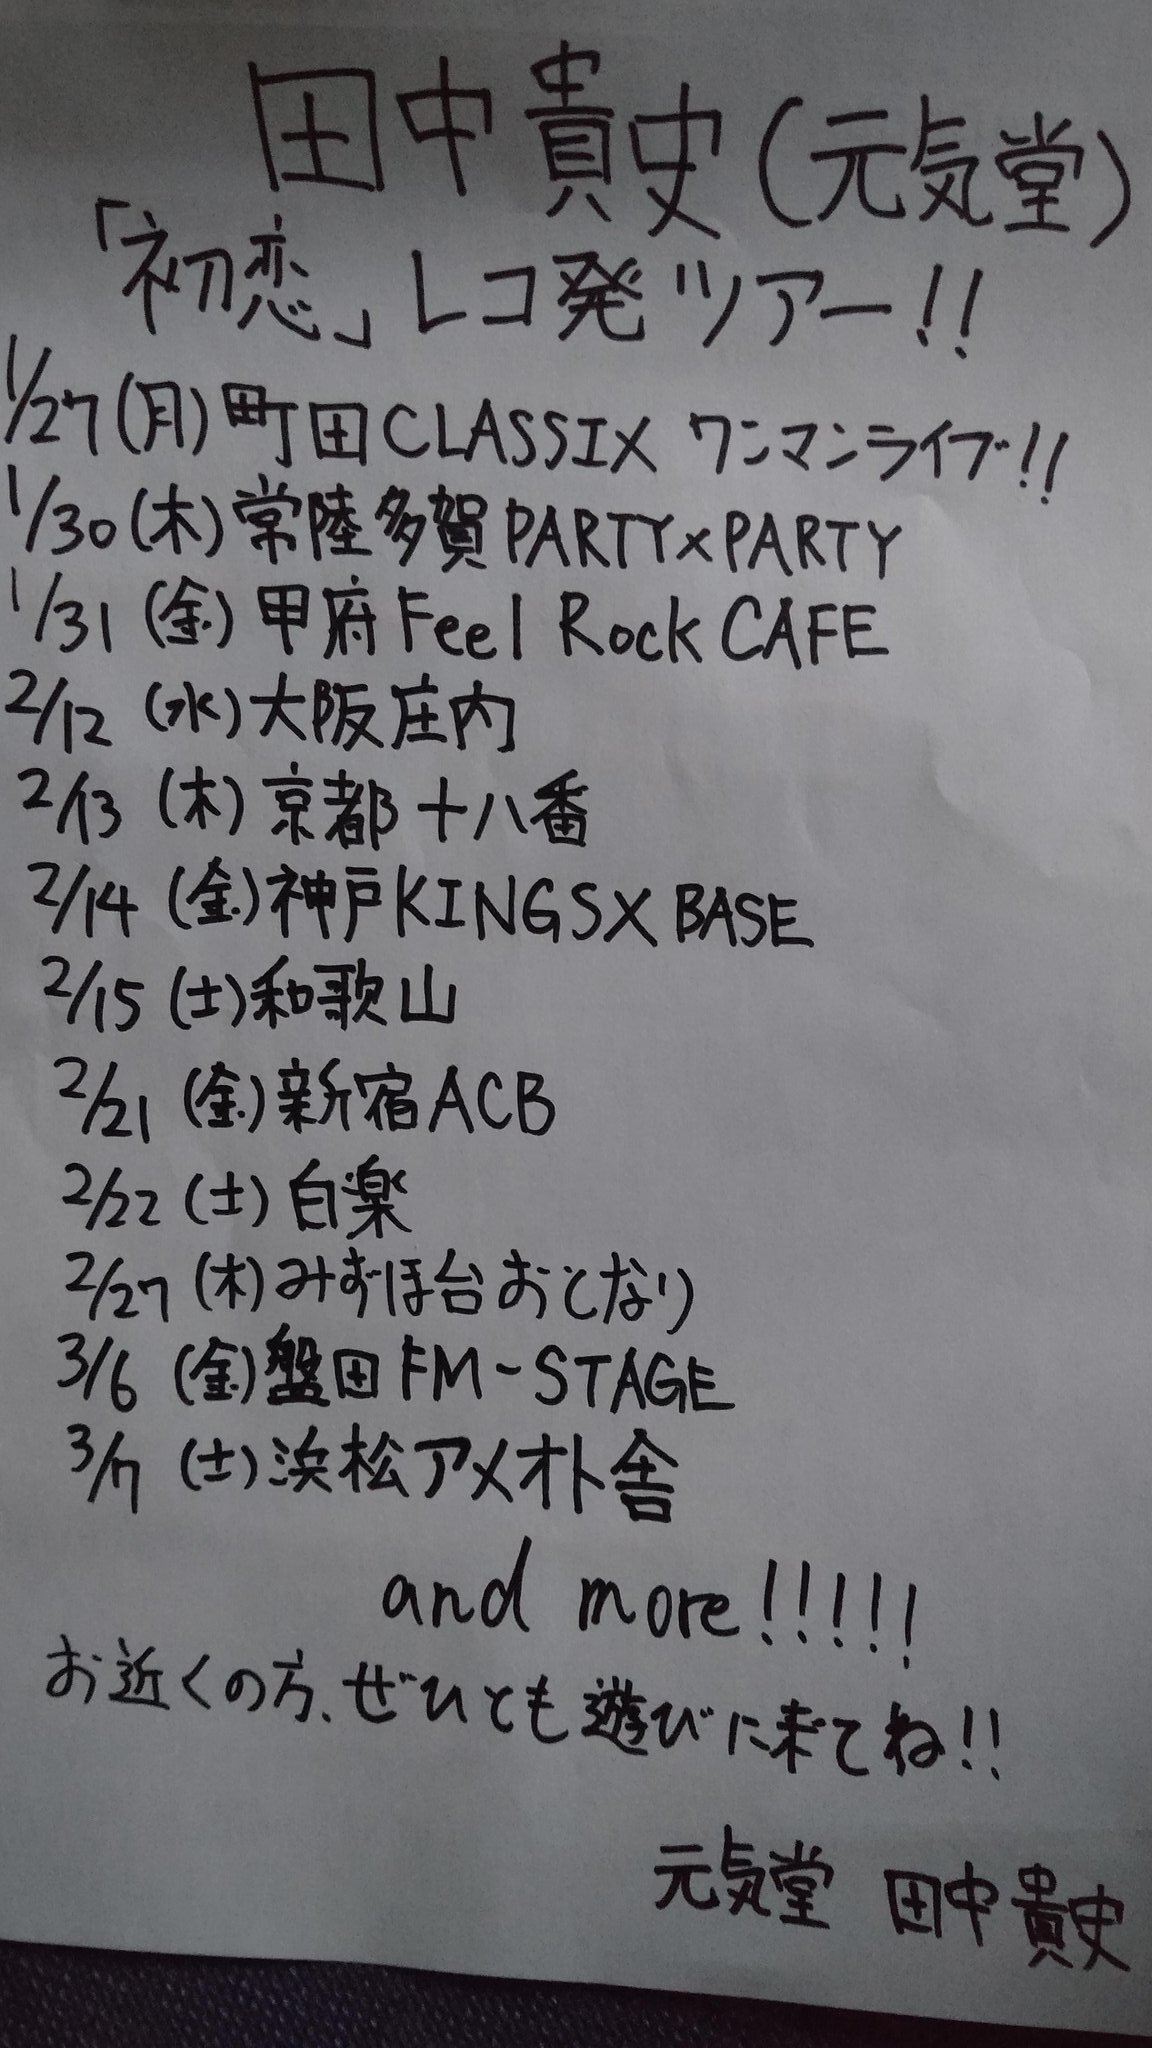 田中貴史(元気堂)
「初恋」レコ発ツアー!!
1/27(月)町田CLASSIX ワンマンライブ!!
1/30(木)常陸多賀PARTY×PARTY
1/31(金)甲府Feel Rock CAFE
2/12(水)大阪庄内
2/13(木)京都十八番
2/14(金)神戸KINGSX BASE
2/15(土)和歌山
2/21(金)新宿ACB
2/22(土)白楽
2/27(木)みずほ台おとなり
3/6(金)盤田FM-STAGE
3/7(土)浜松アメオト舎
and more!!!!!
お近くの方、ぜひとも遊びに来てね!!
元気堂 田中貴史